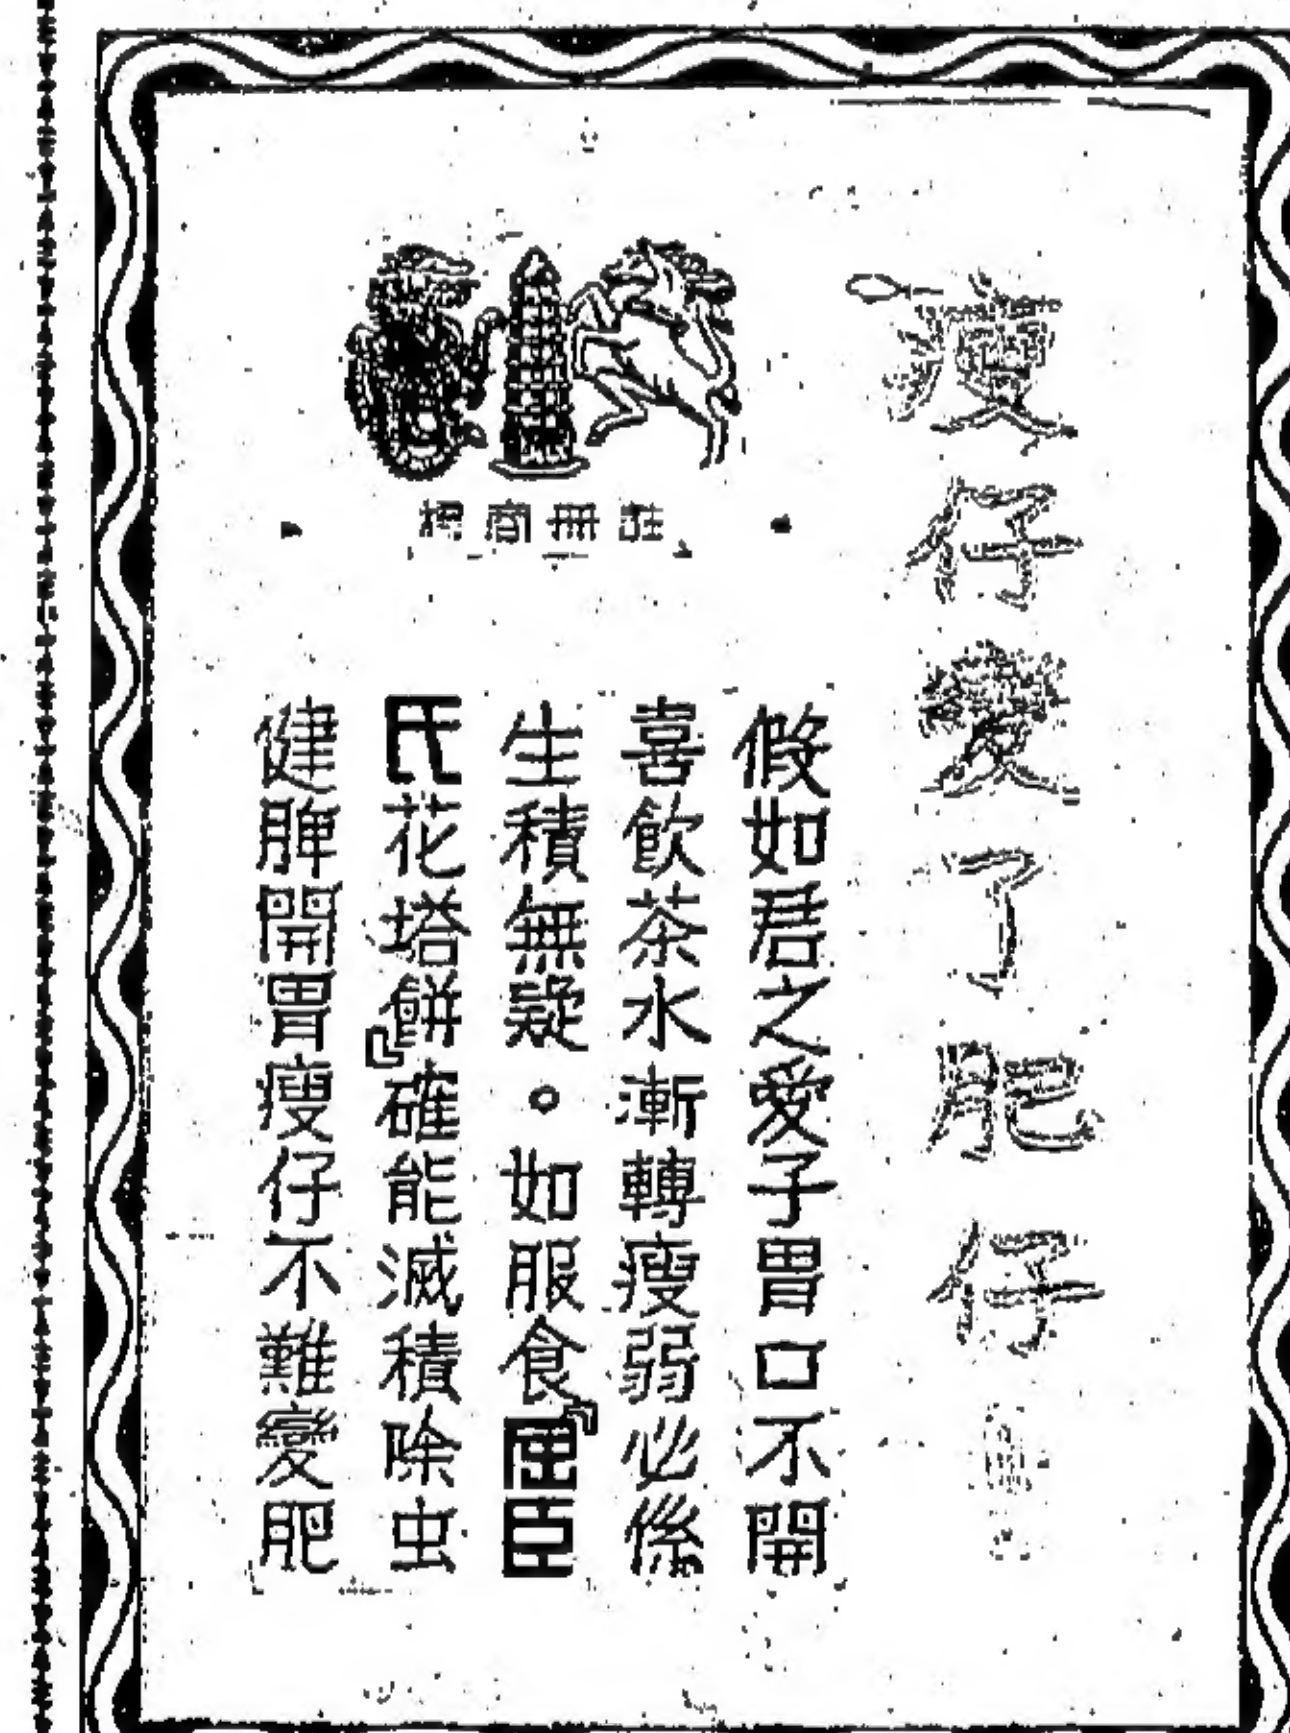 瘦仔變了肥仔
註冊商標
假如君之愛子胃口不開
喜飲茶水漸轉瘦弱必係
生積無疑。如服食『屈臣
氏花塔餅』確能滅積除虫
健脾開胃瘦仔不難變肥